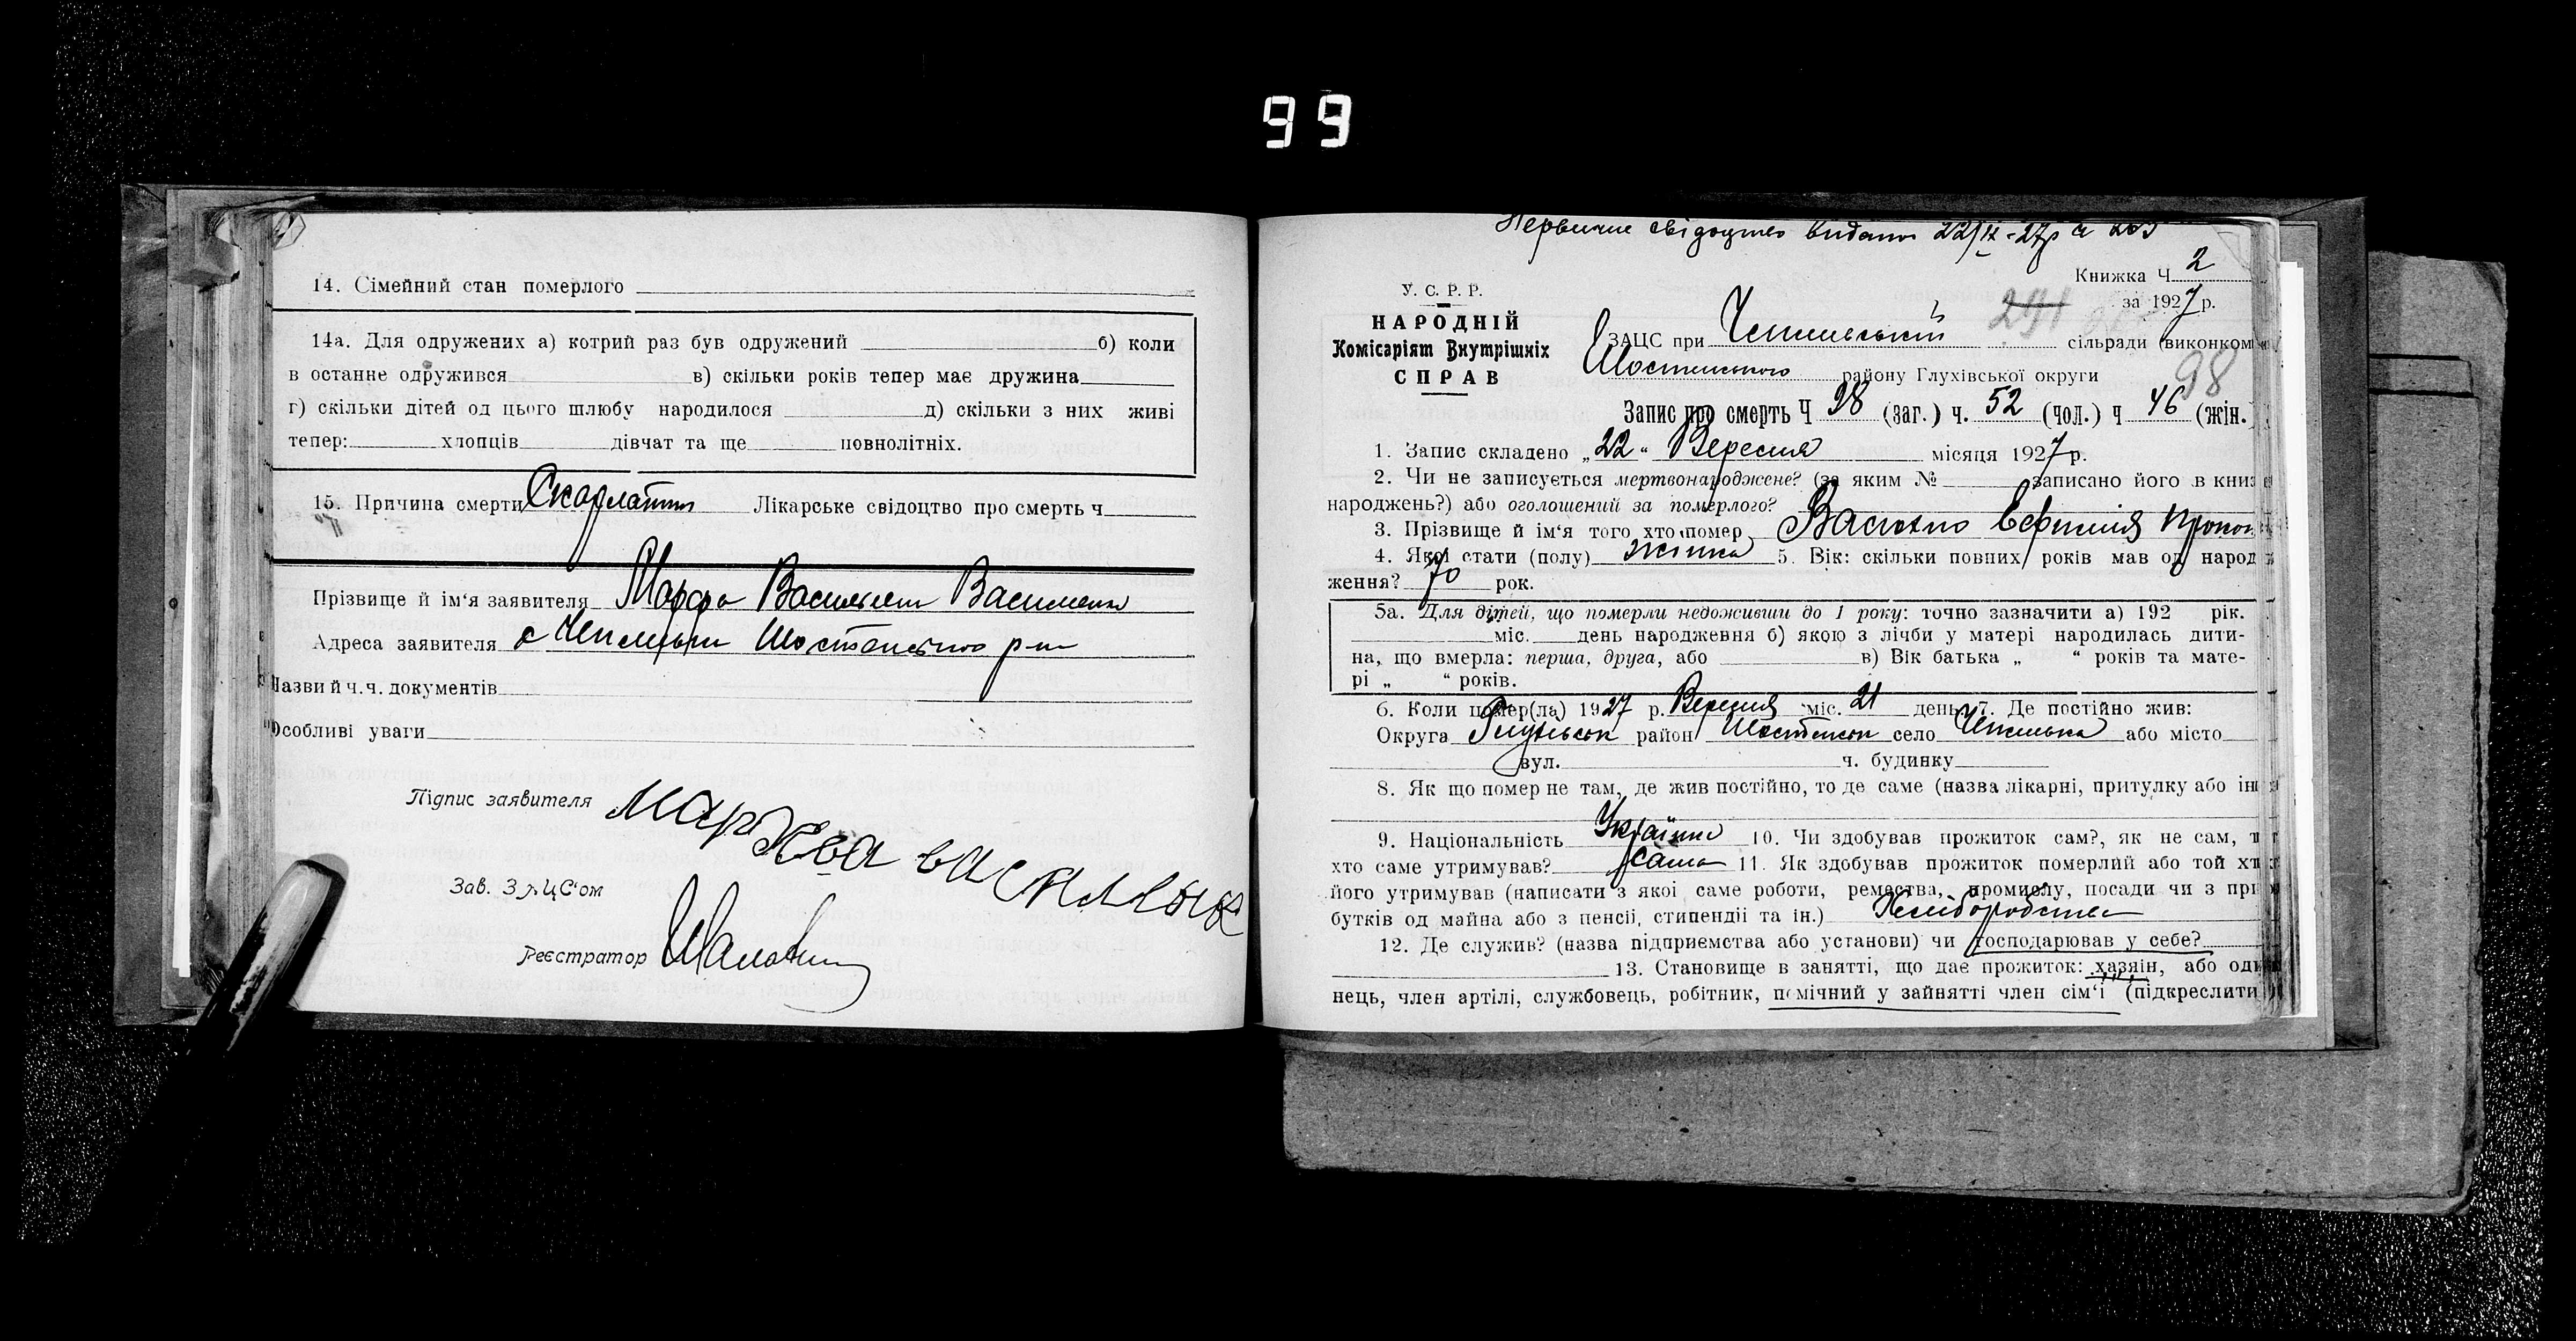 99
14. Сімейний стан померлого
14а. Для одружених а) котрий раз був одружений б) коли
в останне одружився в) скільки років тепер має дружина
г) скільки дітей од цього шлюбу народилося д) скільки з них живі
тепер: хлопців дівчат та ще повнолітніх.
15. Причина смерти Скарлатин Лікарське свідоцтво про смерть ч
Прізвище й ім‘я заявителя Марфа Васильевн Василенко
Адреса заявителя с Чепліївки Шостенського р-ну
Назви й ч.ч. документів
Особливі уваги
Підпис заявителя Мар
Зав. ЗАЦС‘ом
Реєстратор
Первичне свідоцтво видано 22/ІХ-27р
Книжка Ч 2
У. С. Р. Р.
за 1927 р.
НАРОДНІЙ
Комісаріят Внутрішніх
СПРАВ
241
ЗАЦС при сільради (виконком
Шостенського району Глухівської округи
98
Запис про смерть Ч 98 (заг.) ч. 52 (чол.) ч 46 (жін.)
1. Запис складено „22“ Вересня місяця 1927 р.
2. Чи не записується мертвонароджене? (за яким № записано його в книз
народжень?) або оголошений за померлого?
3. Прізвище й ім‘я того хто помер Ефимія
4. Якої стати (полу) жінка 5. Вік: скільки повних років мав од народ
ження? 70 рок.
5а. Для дітей, що померли недоживши до 1 року: точно зазначити а) 192 рік.
міс. день народження б) якою з лічби у матері народилась дити-
на, що вмерла: перша, друга, або в) Вік батька „ “ років та мате-
рі „ “ років.
6. Коли помер(ла) 1927 р. Вересня міс. 21 день. 7. Де постійно жив:
Округа Глухівськ район Шостенськ село або місто
вул. ч. будинку
8. Як що помер не там, де жив постійно, то де саме (назва лікарні, притулку або ін
9. Національність Україн 10. Чи здобував прожиток сам?, як не сам, т
хто саме утримував? сама 11. Як здобував прожиток померлий або той хт
його утримував (написати з якої саме роботи, ремества, промислу, посади чи з при
бутків од майна або з пенсії, стипендії та ін.) Хліборобство
12. Де служив? (назва підприємства або установи) чи господарював у себе?
13. Становище в занятті, що дає прожиток: хазяїн, або оди
нець, член артілі, службовець, робітник, помічний у зайнятті член сім‘ї (підкреслити